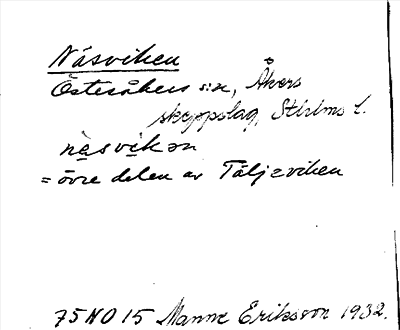 Näsviken
Österåkers sn, Åkers
skeppslag, Sthlms l.
näsvikən
= övre delen av Täljeviken
75 NO 15 Manne Eriksson 1932.